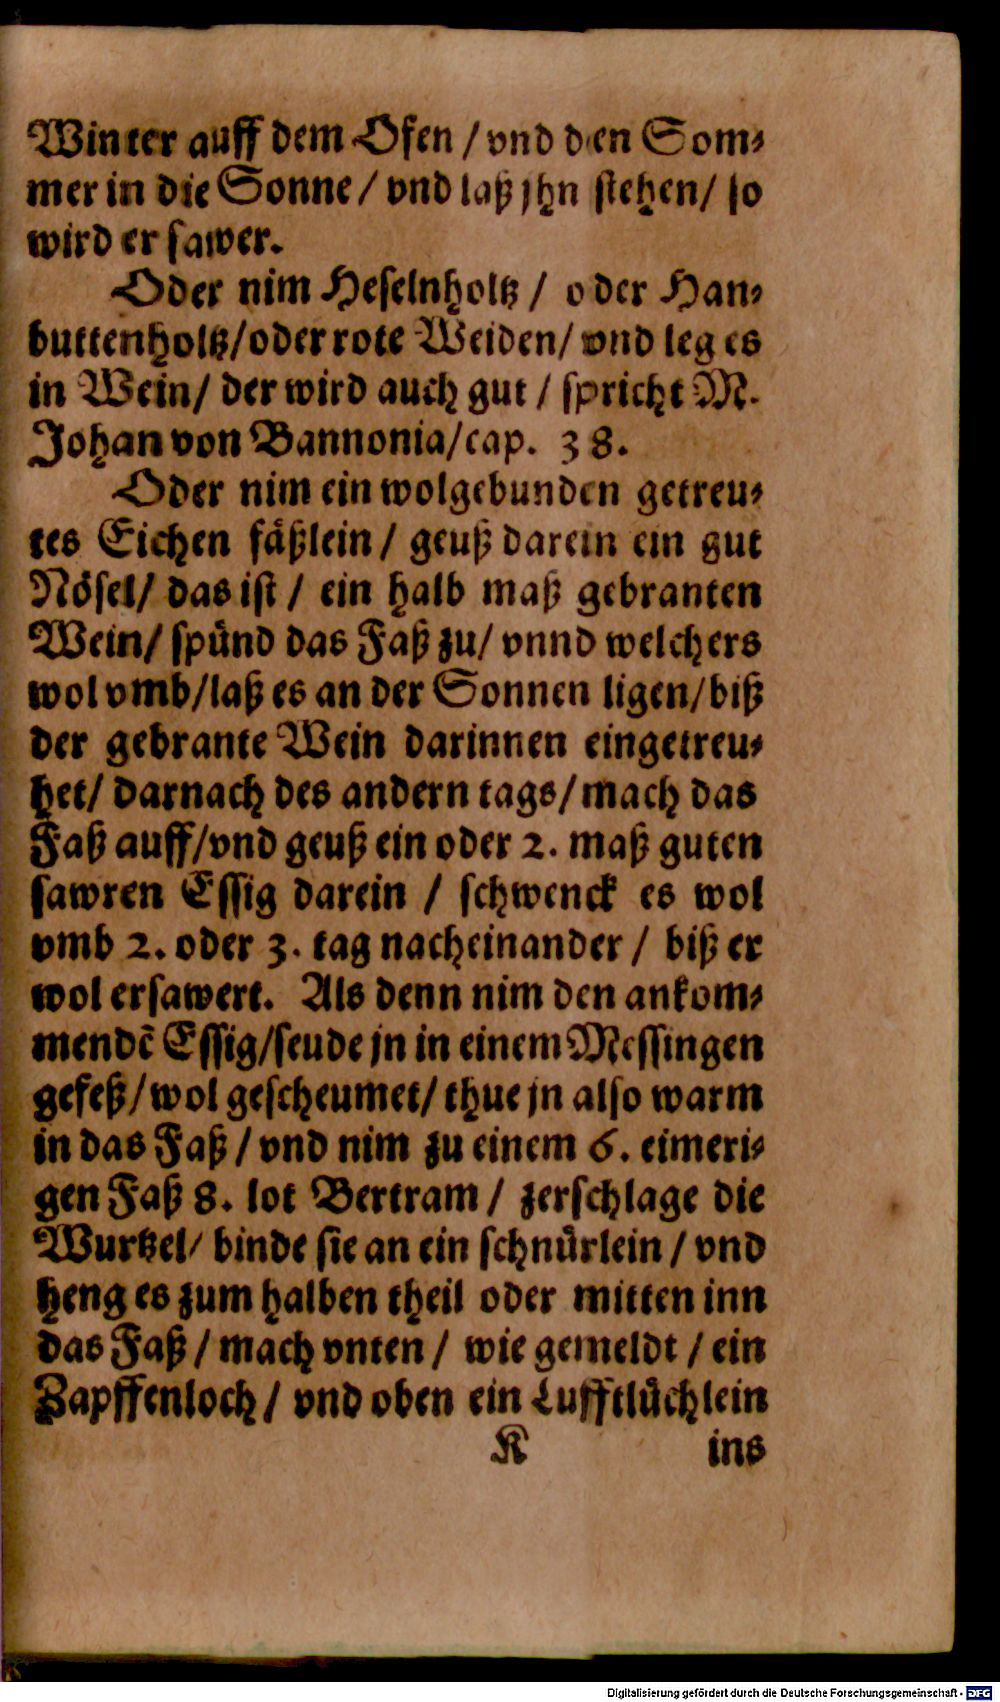 Winter auff dem Ofen / vnd den Som⸗
mer in die Sonne / vnd laß jhn stehen / so
wird er sawer.
Oder nim Heselnholtz / oder Han⸗
buttenholtz / oder rote Weiden / vnd leg es
in Wein / der wird auch gut / spricht M.
Johan von Bannonia / cap. 38.
Oder nim ein wolgebunden getreu⸗
tes Eichen fäßlein / geuß darein ein gut
Nösel / das ist / ein halb maß gebranten
Wein / spünd das Faß zu / vnnd welchers
wol vmb / laß es an der Sonnen ligen / biß
der gebrante Wein darinnen eingetreu⸗
het / darnach des andern tags / mach das
Faß auff / vnd geuß ein oder 2. maß guten
sawren Essig darein / schwenck es wol
vmb 2. oder 3. tag nacheinander / biß er
wol ersawert. Als denn nim den ankom⸗
mendē Essig / seude jn in einem Messingen
gefeß / wol gescheumet / thue jn also warm
in das Faß / vnd nim zu einem 6. eimeri⸗
gen Faß 8. lot Bertram / zerschlage die
Wurtzel / binde sie an ein schnürlein / vnd
heng es zum halben theil oder mitten inn
das Faß / mach vnten / wie gemeldt / ein
Zapffenloch / vnd oben ein Lufftlüchlein
K ins
Digitalisierung gefördert durch die Deutsche Forschungsgemeinschaft - DFG